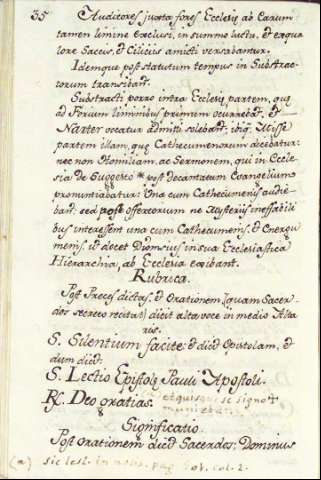 35 Auditores juxta fores Ecclesię ab earum
tamen limine exclusi, in summo luctu, et
lore Saccis, et Ciliciis amicti versabantur.
Idemque post statutum tempus in Substrac-
torum transibant.
Substracti porro intra Ecclesię partem, quę
ad Forum liminibus primum occurrebat, et
vocatur admitti solebant; ibiq. Missę
partem illam, quę Cathecumenorum dicebatur:
nec non Homiliam, ac Sermonem, qui in Eccle-
sia De Suggesto * post Decantatum Evangelium
pronuntiabatur: Una cum Cathecumenis audie-
bant. sed post offertorium ne Mysteriis ineffabili
bus interessent una cum Cathecumenis, et Energu
menis, ut docet Dionisius in sua Ecclesiastica
Hierarchia, ab Ecclesia exibant.
Rubrica.
Post Preces dictas, et Orationem (quam Sacer-
dos secreto recitat) dicit alta voce in medio Alta
ris.
S. Silentium facite: et dicit Epistolam, et
dum dicit:
S. Lectio Epistolę Pauli Apostoli.
R. Deo gratias. et quisque se signo
Significatio.
Post Orationem dicit Sacerdos: Dominus
(a) sic